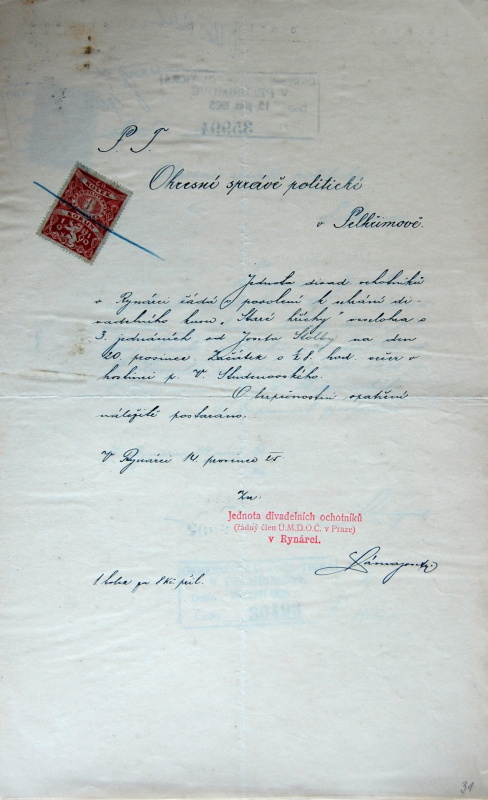 P. T.
Okresní správě politické
v Pelhřimově.
Jednota divad. ochotníků
v Rynárci žádá o povolení k sehrání di-
vadelního kusu „Staré hříchy" veselohra o
3. jednáních od Josefa Štolby na den
20 prosince. Začátek o ½ 8. hod. večer v
hostinci p. V. Studenovského.
O bezpečnostní opatření
náležitě postaráno.
V Rynárci 14. prosince 25
Za:
Jednota divadelních ochotníků
(řádný člen Ú.M.D.O.Č. v Praze)
v Rynárci.
1 kolek po 8 Kč přil.
KOLEK
KOLKY
1
35904
31